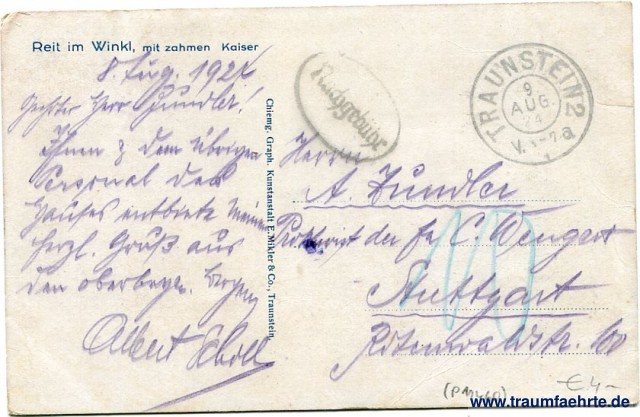 Reit im Winkl, mit zahmen Kaiser
8. Aug. 1924
Geehrter Herr Zundler!
Ihnen & dem übrigen
Personal des
Hauses entbiete meinen
herzl. Gruß aus
den oberbayr. Bergen
Albert Scholl
Chiemg. Graph. Kunstanstalt E. Mikler & Co., Traunstein.
Nachgebühr
TRAUNSTEIN 2
9
AUG.
24
Herrn
A. Zundler
Prokurist der Fa. C. Wengert
Stuttgart
Rotenwaldstr. 100
10
€ 4-
www.traumfaehrte.de